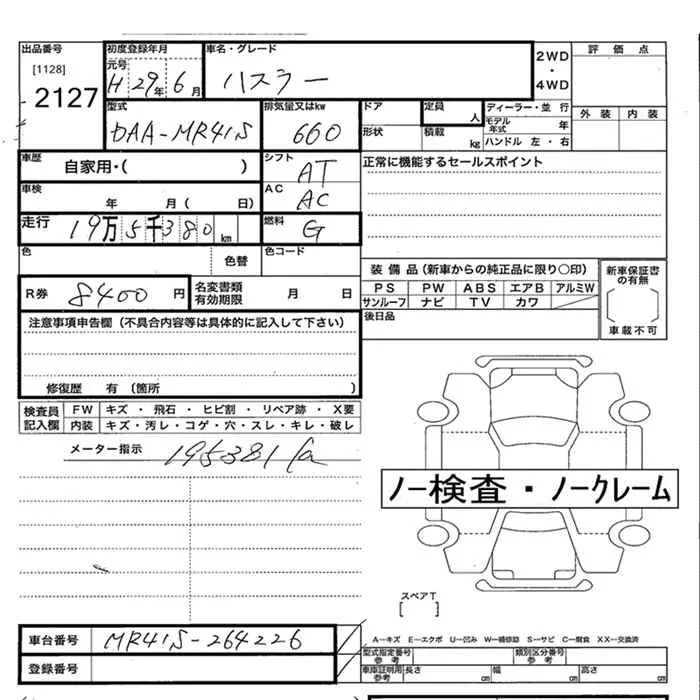 出品番号 初度登録年月 車名・グレード 2WD・4WD 評価点
[1128] 元号 H 29年 6月 ハスラー
2127 外装 内装
型式 排気量又はkw ドア 定員 人 ディーラー・並行
DAA-MR41S 660 形状 積載 kg モデル年式 年
ハンドル 左・右
車歴 自家用・( ) シフト AT 正常に機能するセールスポイント
車検 年 月( 日) AC AC
走行 19万5千380km 燃料 G
色 色替 色コード
装備品(新車からの純正品に限り〇印) 新車保証書の有無
R券 8400円 名変書類有効期限 月 日 PS PW ABS エアB アルミW
サンルーフ ナビ TV カワ 車載不可
注意事項申告欄(不具合内容等は具体的に記入して下さい) 後日品
修復歴 有(箇所 )
検査員記入欄 FW キズ・飛石・ヒビ割・リペア跡・X要
内装 キズ・汚レ・コゲ・穴・スレ・キレ・破レ
メーター指示 195381
ノー検査・ノークレーム
スペアT
[ ]
車台番号 MR41S-264226 A－キズ E－エクボ U－凹み W－補修跡 S－サビ C－腐食 XX－交換済
型式指定番号 参考 類別区分番号 参考
登録番号 車庫証明用 参考 長さ cm 幅 cm 高さ cm